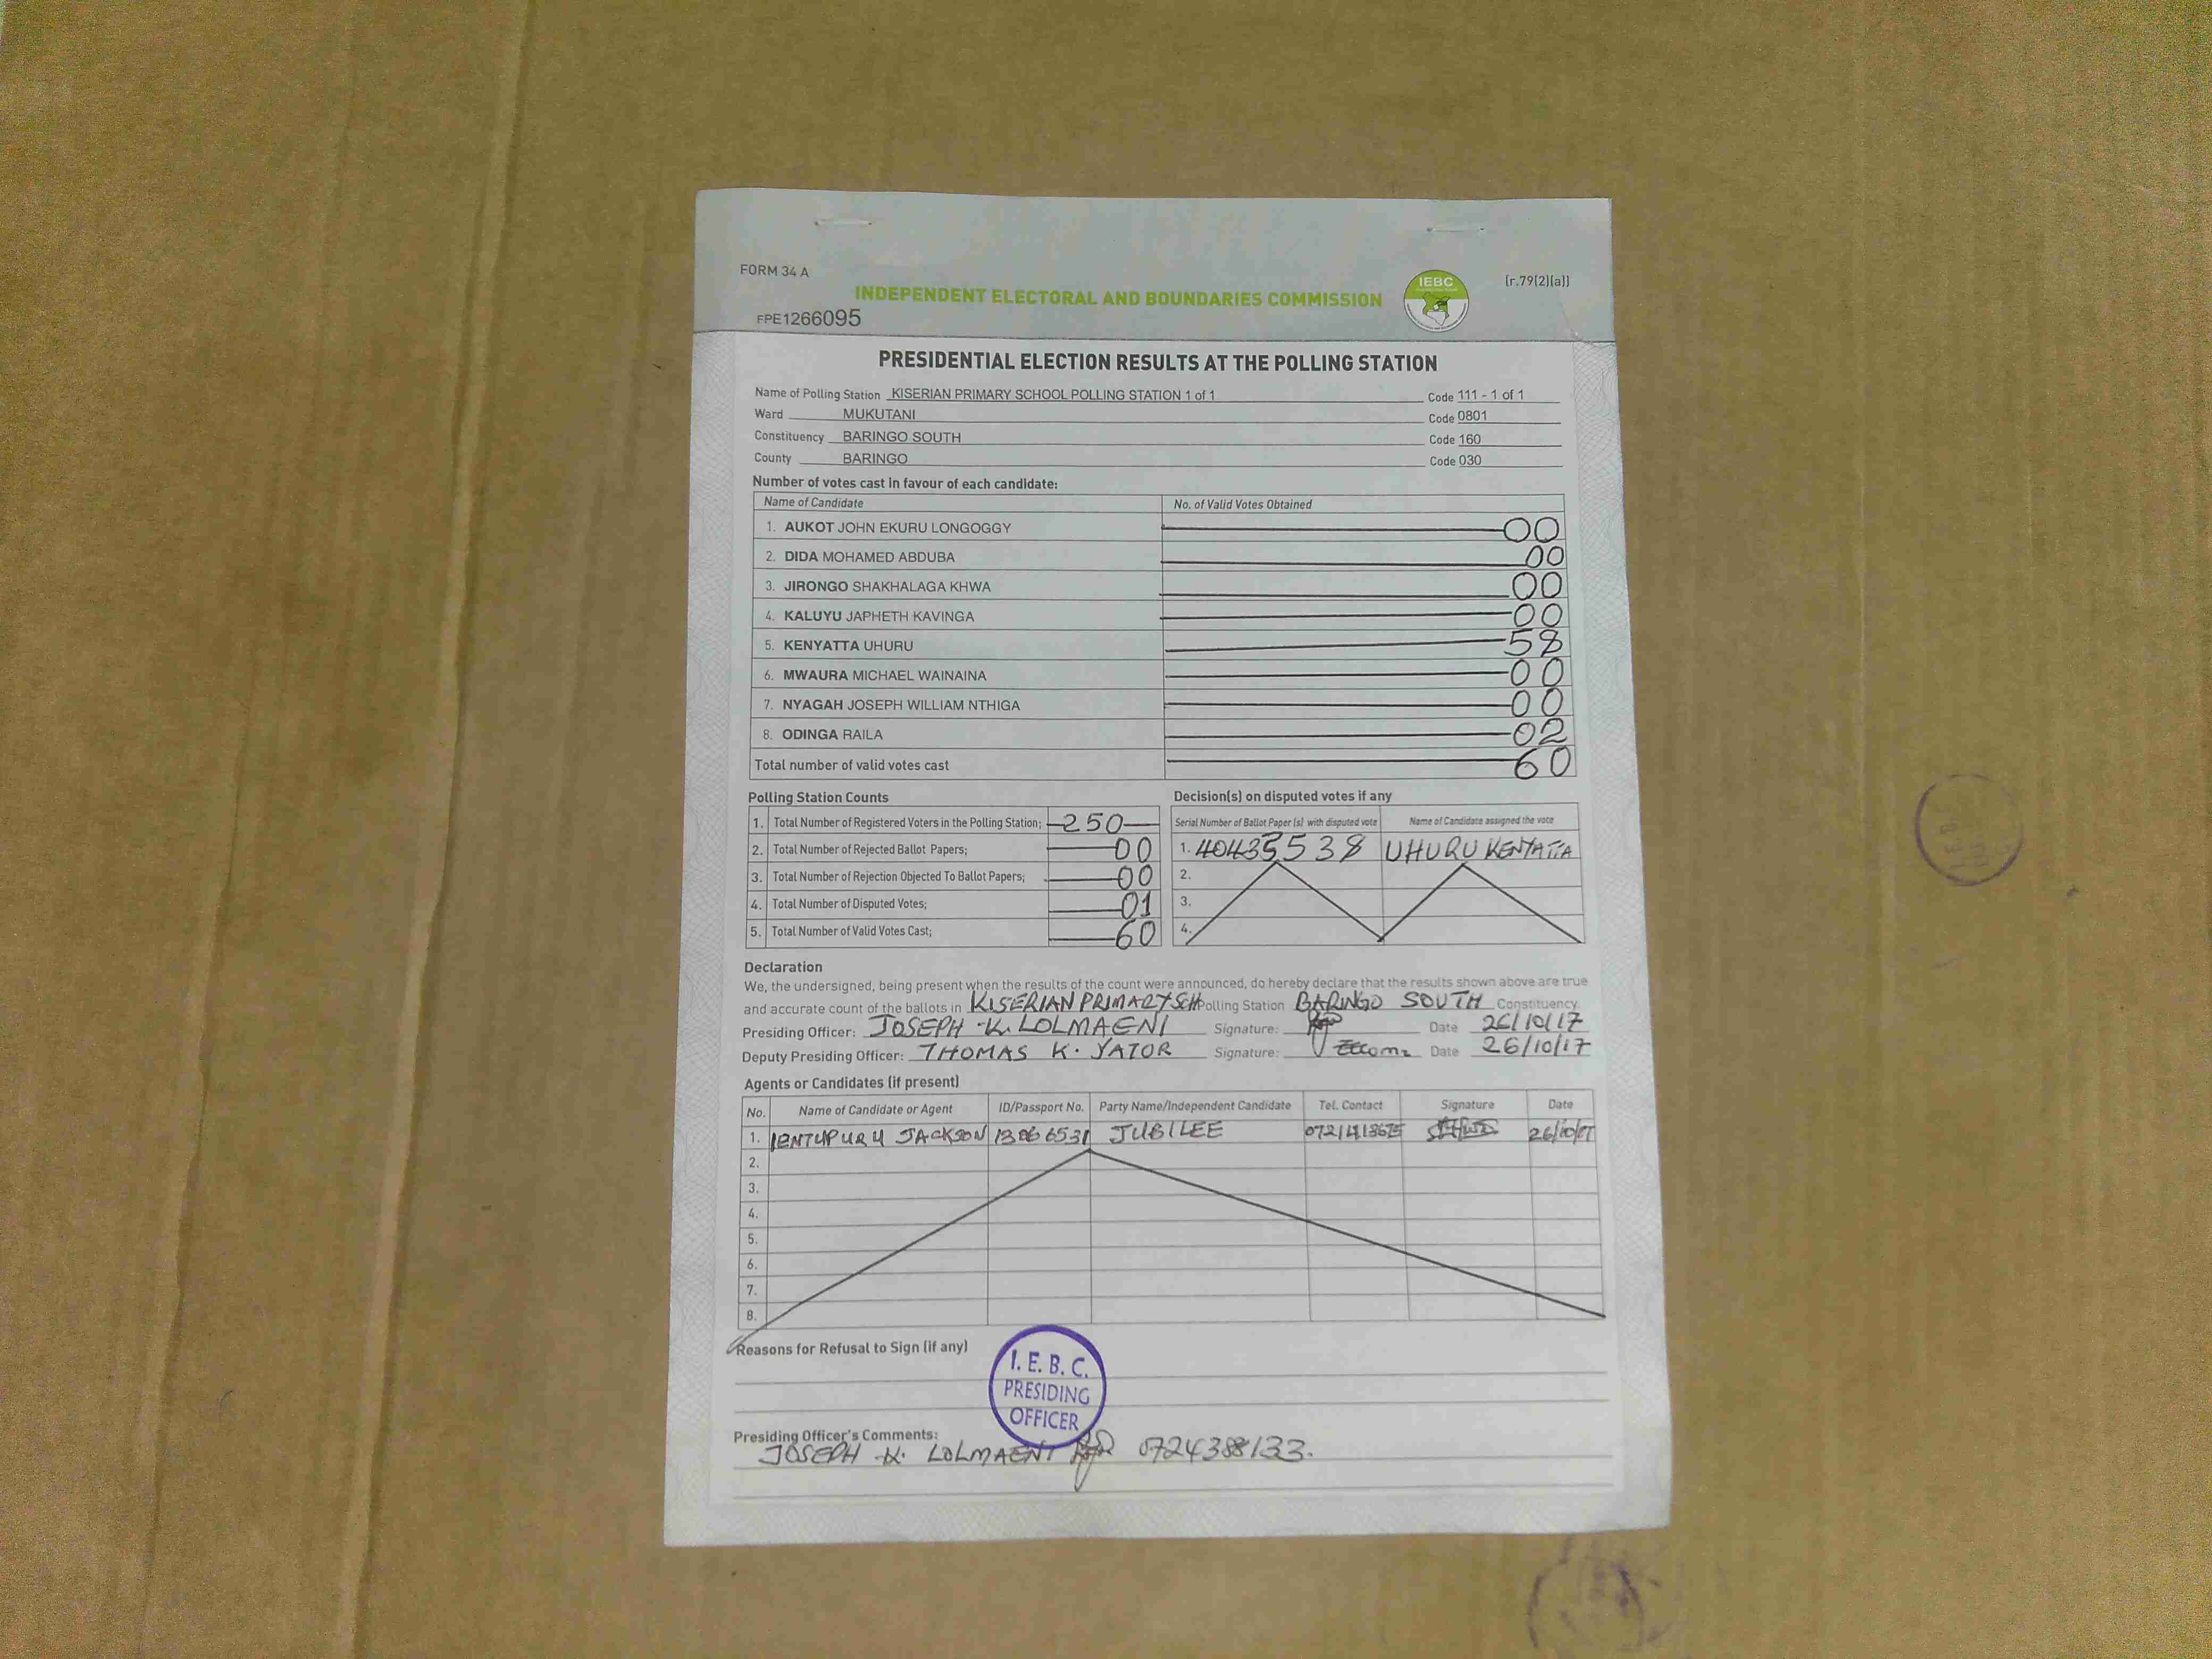 FORM 34 A
(r.79(2)(a))
INDEPENDENT ELECTORAL AND BOUNDARIES COMMISSION
IEBC
FPE1266095
PRESIDENTIAL ELECTION RESULTS AT THE POLLING STATION
Name of Polling Station KISERIAN PRIMARY SCHOOL POLLING STATION 1 of 1 Code 111 - 1 of 1
Ward MUKUTANI Code 0801
Constituency BARINGO SOUTH Code 160
County BARINGO Code 030
Number of votes cast in favour of each candidate:
Name of Candidate No. of Valid Votes Obtained
1. AUKOT JOHN EKURU LONGOGGY 00
2. DIDA MOHAMED ABDUBA 00
3. JIRONGO SHAKHALAGA KHWA 00
4. KALUYU JAPHETH KAVINGA 00
5. KENYATTA UHURU 58
6. MWAURA MICHAEL WAINAINA 00
7. NYAGAH JOSEPH WILLIAM NTHIGA 00
8. ODINGA RAILA 02
Total number of valid votes cast 60
Polling Station Counts
1. Total Number of Registered Voters in the Polling Station; 250
2. Total Number of Rejected Ballot Papers; 00
3. Total Number of Rejection Objected To Ballot Papers; 00
4. Total Number of Disputed Votes; 01
5. Total Number of Valid Votes Cast; 60
Decision(s) on disputed votes if any
Serial Number of Ballot Paper (s) with disputed vote Name of Candidate assigned the vote
1. UHURU KENYATTA
2.
3.
4.
Declaration
We, the undersigned, being present when the results of the count were announced, do hereby declare that the results shown above are true
and accurate count of the ballots in KISERIAN PRIMARY SCH Polling Station BARINGO SOUTH Constituency.
Presiding Officer: JOSEPH K. LOLMAENI Signature: Date 26/10/17
Deputy Presiding Officer: THOMAS K. YATOR Signature: Date 26/10/17
Agents or Candidates (if present)
No. Name of Candidate or Agent ID/Passport No. Party Name/Independent Candidate Tel. Contact Signature Date
1. JACKSON JUBILEE 26/10/17
2.
3.
4.
5.
6.
7.
8.
Reasons for Refusal to Sign (if any)
I. E. B. C.
PRESIDING
OFFICER
Presiding Officer's Comments:
JOSEPH K. LOLMAENI 0724388133.